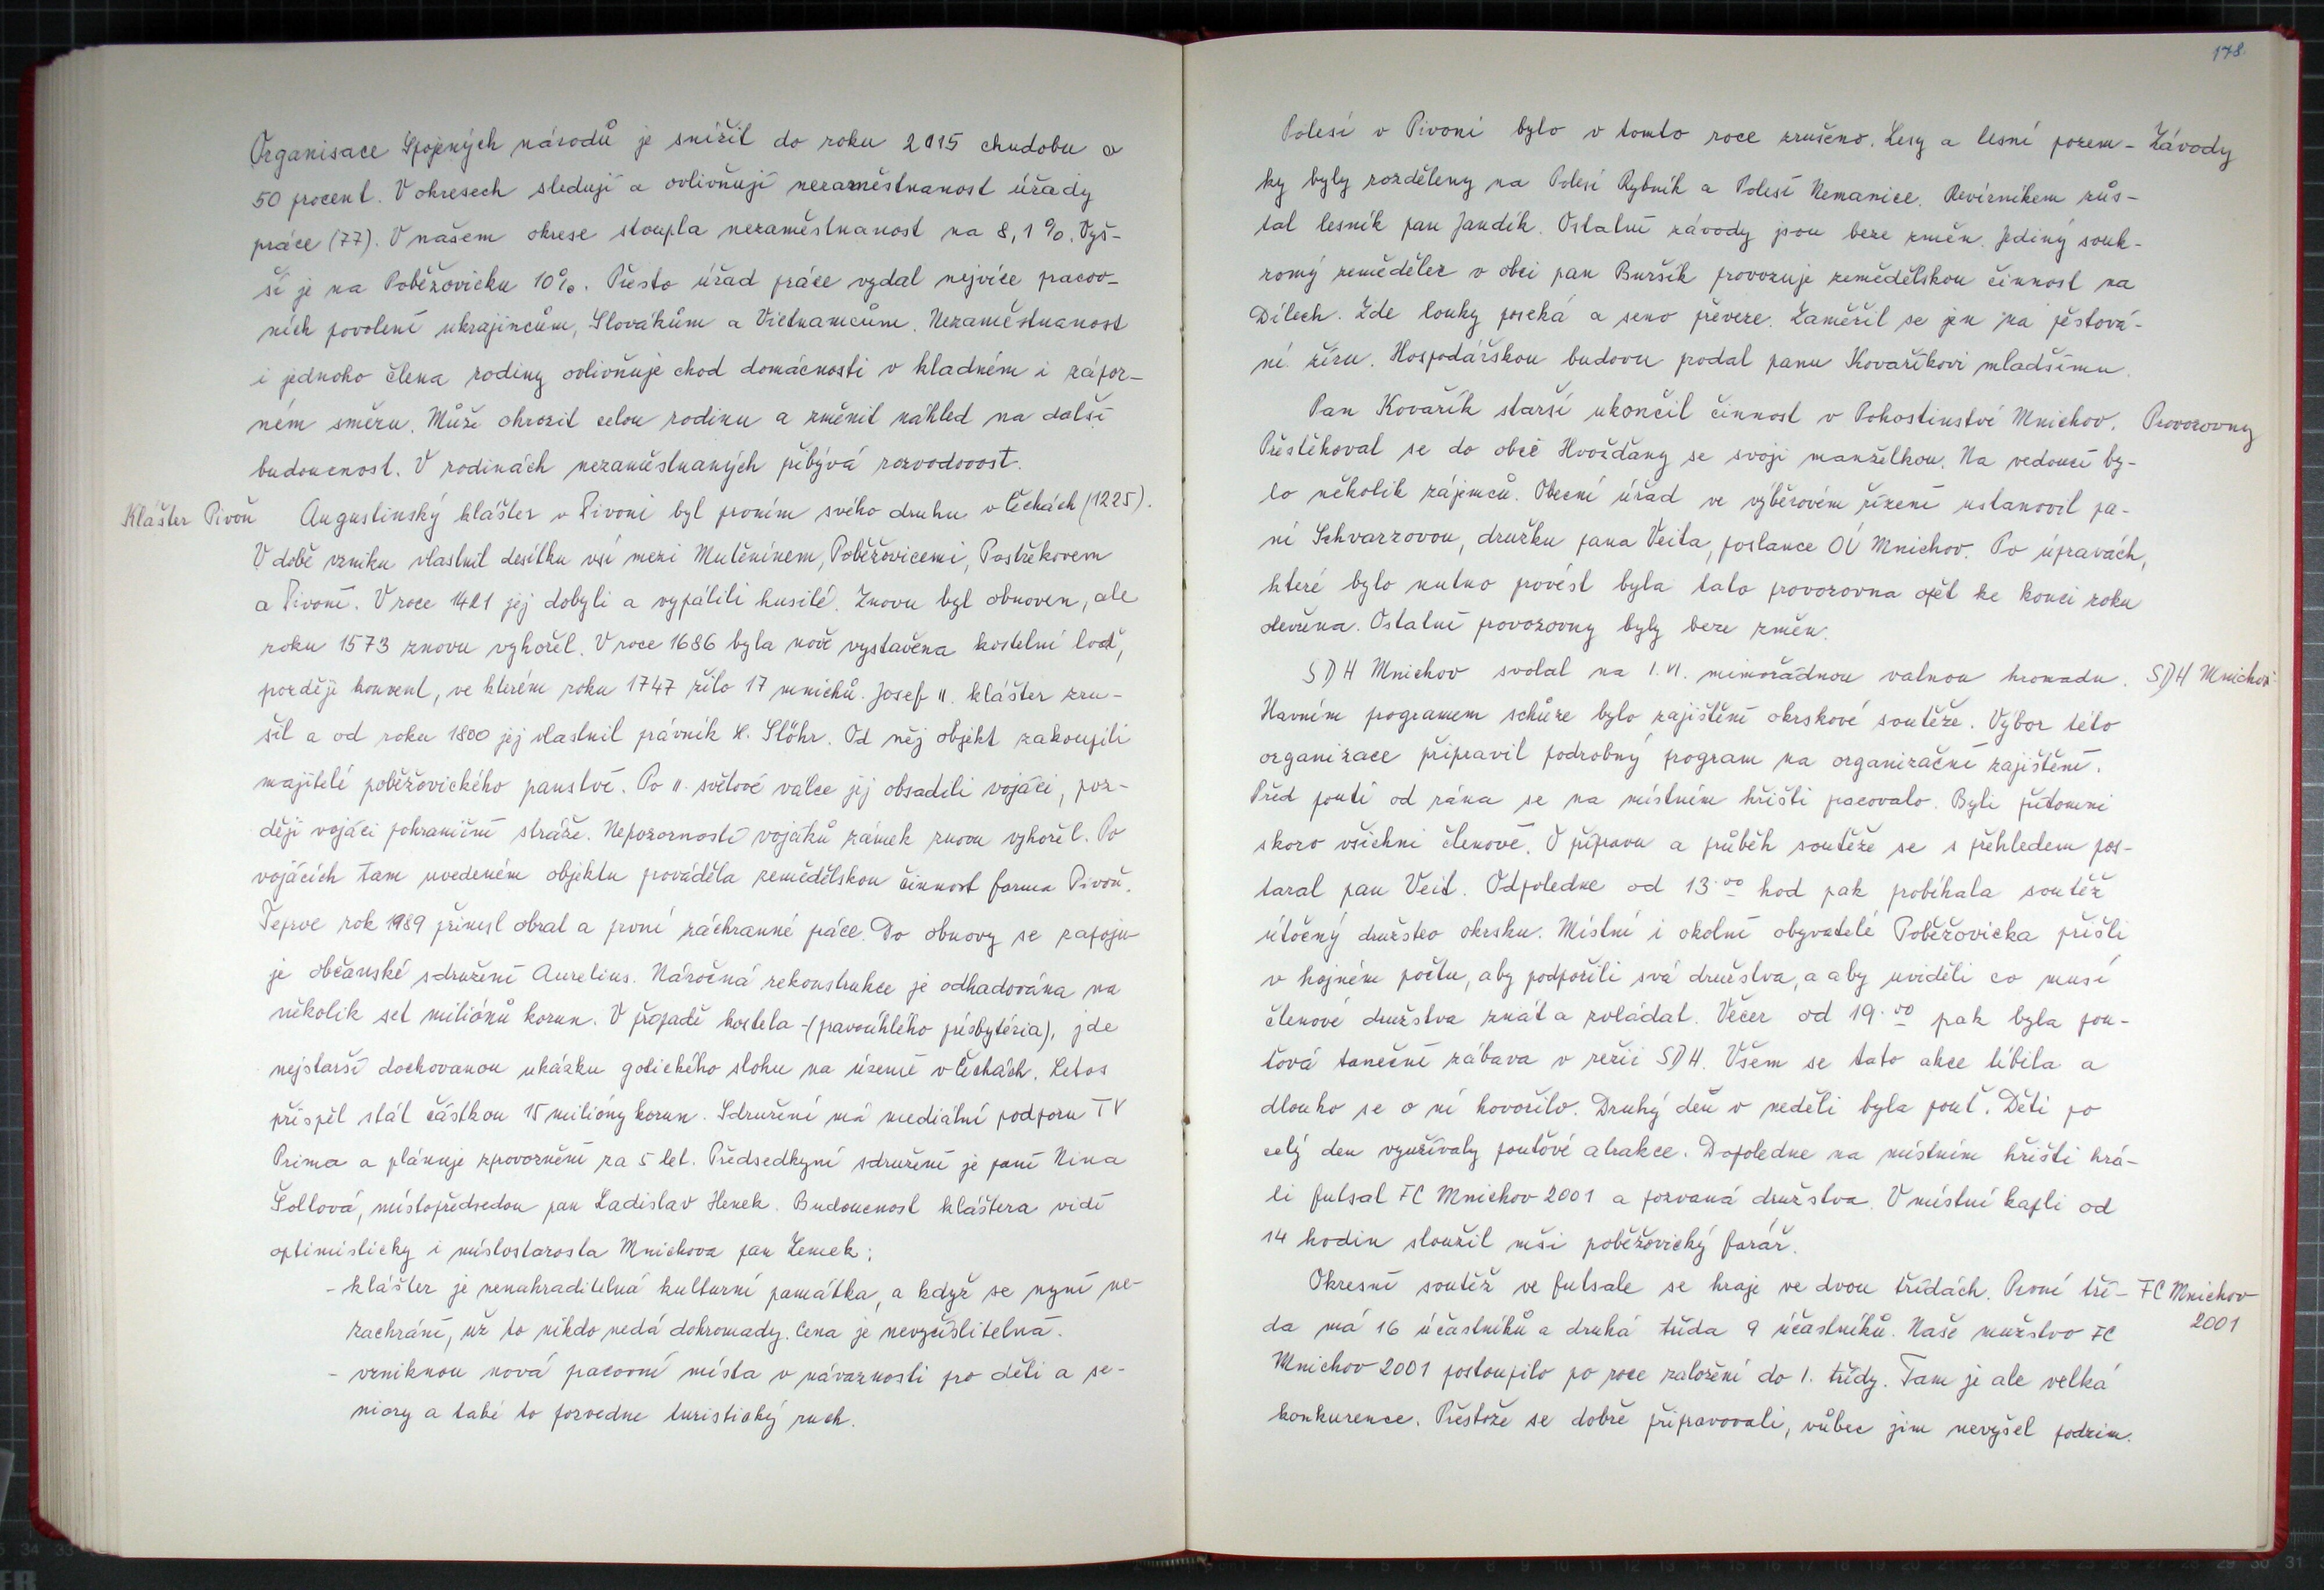 Organisace Spojených národů je snížit do roku 2015 chudobu o
50 procent. V okresech sledují a ovlivňují nezaměstnanost úřady
práce (77). V našem okrese stoupla nezaměstnanost na 8,1 %. Vyš-
ší je na Poběžovicku 10%. Přesto úřad práce vydal nejvíce pracov-
ních povolení ukrajincům, Slovákům a Vietnamcům. Nezaměstnanost
i jednoho člena rodiny ovlivňuje chod domácnosti v kladném i zápor-
ném směru. Může ohrozit celou rodinu a změnit náhled na další
budoucnost. V rodinách nezaměstnaných přibývá rozvodovost.
Klášter Pivoň Augustinský klášter v Pivoni byl prvním svého druhu v Čechách (1225).
V době vzniku vlastnil desítku vsí mezi Mutěnínem, Poběžovicemi, Postřekovem
a Pivoní. V roce 1421 jej dobyli a vypálili husité. Znovu byl obnoven, ale
roku 1573 znovu vyhořel. V roce 1686 byla nově vystavěna kostelní loď,
později konvent, ve kterém roku 1747 žilo 17 mnichů. Josef II. klášter zru-
šil a od roku 1800 jej vlastnil právník H. Stöhr. Od něj objekt zakoupili
majitelé poběžovického panství. Po II. světové válce jej obsadili vojáci, poz-
ději vojáci pohraniční stráže. Nepozorností vojáků zámek znovu vyhořel. Po
vojácích tam uvedeném objektu prováděla zemědělskou činnost farma Pivoň.
Teprve rok 1989 přinesl obrat a první záchranné práce. Do obnovy se zapoju-
je občanské sdružení Aurelius. Náročná rekonstrukce je odhadována na
několik set miliónů korun. V případě kostela -(pravoúhlého presbytéria), jde
nejstarší dochovanou ukázku gotického slohu na území v Čechách. Letos
přispěl stát částkou 15 milióny korun. Sdružení má mediální podporu TV
Prima a plánuje zprovoznění za 5 let. Předsedkyní sdružení je paní Nina
Šoltová, místopředsedou pan Ladislav Henek. Budoucnost kláštera vidí
optimisticky i místostarosta Mnichova pan Zemek:
- klášter je nenahraditelná kulturní památka, a když se nyní ne-
zachrání, už to nikdo nedá dohromady. Cena je nevyčíslitelná.
- vzniknou nová pracovní místa v návaznosti pro děti a se-
niory a také to pozvedne turistický ruch.
178.
Polesí v Pivoni bylo v tomto roce zrušeno. Lesy a lesní pozem- Závody
ky byly rozděleny na Polesí Rybník a Polesí Nemanice. Revírníkem zůs-
tal lesník pan Jandík. Ostatní závody jsou beze změn. Jediný souk-
romý zemědělec v obci pan Buršík provozuje zemědělskou činnost na
Dílech. Zde louky poseká a seno převeze. Zaměřil se jen na pěstová-
ní žíru. Hospodářskou budovu prodal panu Kovaříkovi mladšímu.
Pan Kovařík starší ukončil činnost v Pohostinství Mnichov. Provozovny
Přestěhoval se do obce Hvožďany se svojí manželkou. Na vedoucí by-
lo několik zájemců. Obecní úřad ve výběrovém řízení ustanovil pa-
ní Schvarzovou, družku pana Veita, poslance OÚ Mnichov. Po úpravách,
které bylo nutno provést byla tato provozovna opět ke konci roku
otevřena. Ostatní provozovny byly beze změn.
SDH Mnichov svolal na 1. VI. mimořádnou valnou hromadu. SDH Mnichov
Hlavním programem schůze bylo zajištění okrskové soutěže. Výbor této
organizace připravil podrobný program na organizační zajištění.
Před poutí od rána se na místním hřišti pracovalo. Byli přítomni
skoro všichni členové. O přípravu a průběh soutěže se s přehledem pos-
taral pan Veit. Odpoledne od 13.00 hod pak probíhala soutěž
útočný družstev okrsku. Místní i okolní obyvatelé Poběžovicka přišli
v hojném počtu, aby podpořili svá družstva, a aby uviděli co musí
členové družstva znát a zvládat. Večer od 19.00 pak byla pou-
ťová taneční zábava v režii SDH. Všem se tato akce líbila a
dlouho se o ní hovořilo. Druhý deň v neděli byla pouť. Děti po
celý den využívaly pouťové atrakce. Dopoledne na místním hřišti hrá-
li futsal FC Mnichov 2001 a pozvaná družstva. V místní kapli od
14 hodin sloužil mši poběžovický farář.
Okresní soutěž ve futsale se hraje ve dvou třídách. První tří- FC Mnichov
da má 16 účastníků a druhá třída 9 účastníků. Naše mužstvo FC 2001
Mnichov 2001 postoupilo po roce založení do 1. třídy. Tam je ale velká
konkurence. Přestože se dobře připravovali, vůbec jim nevyšel podzim.